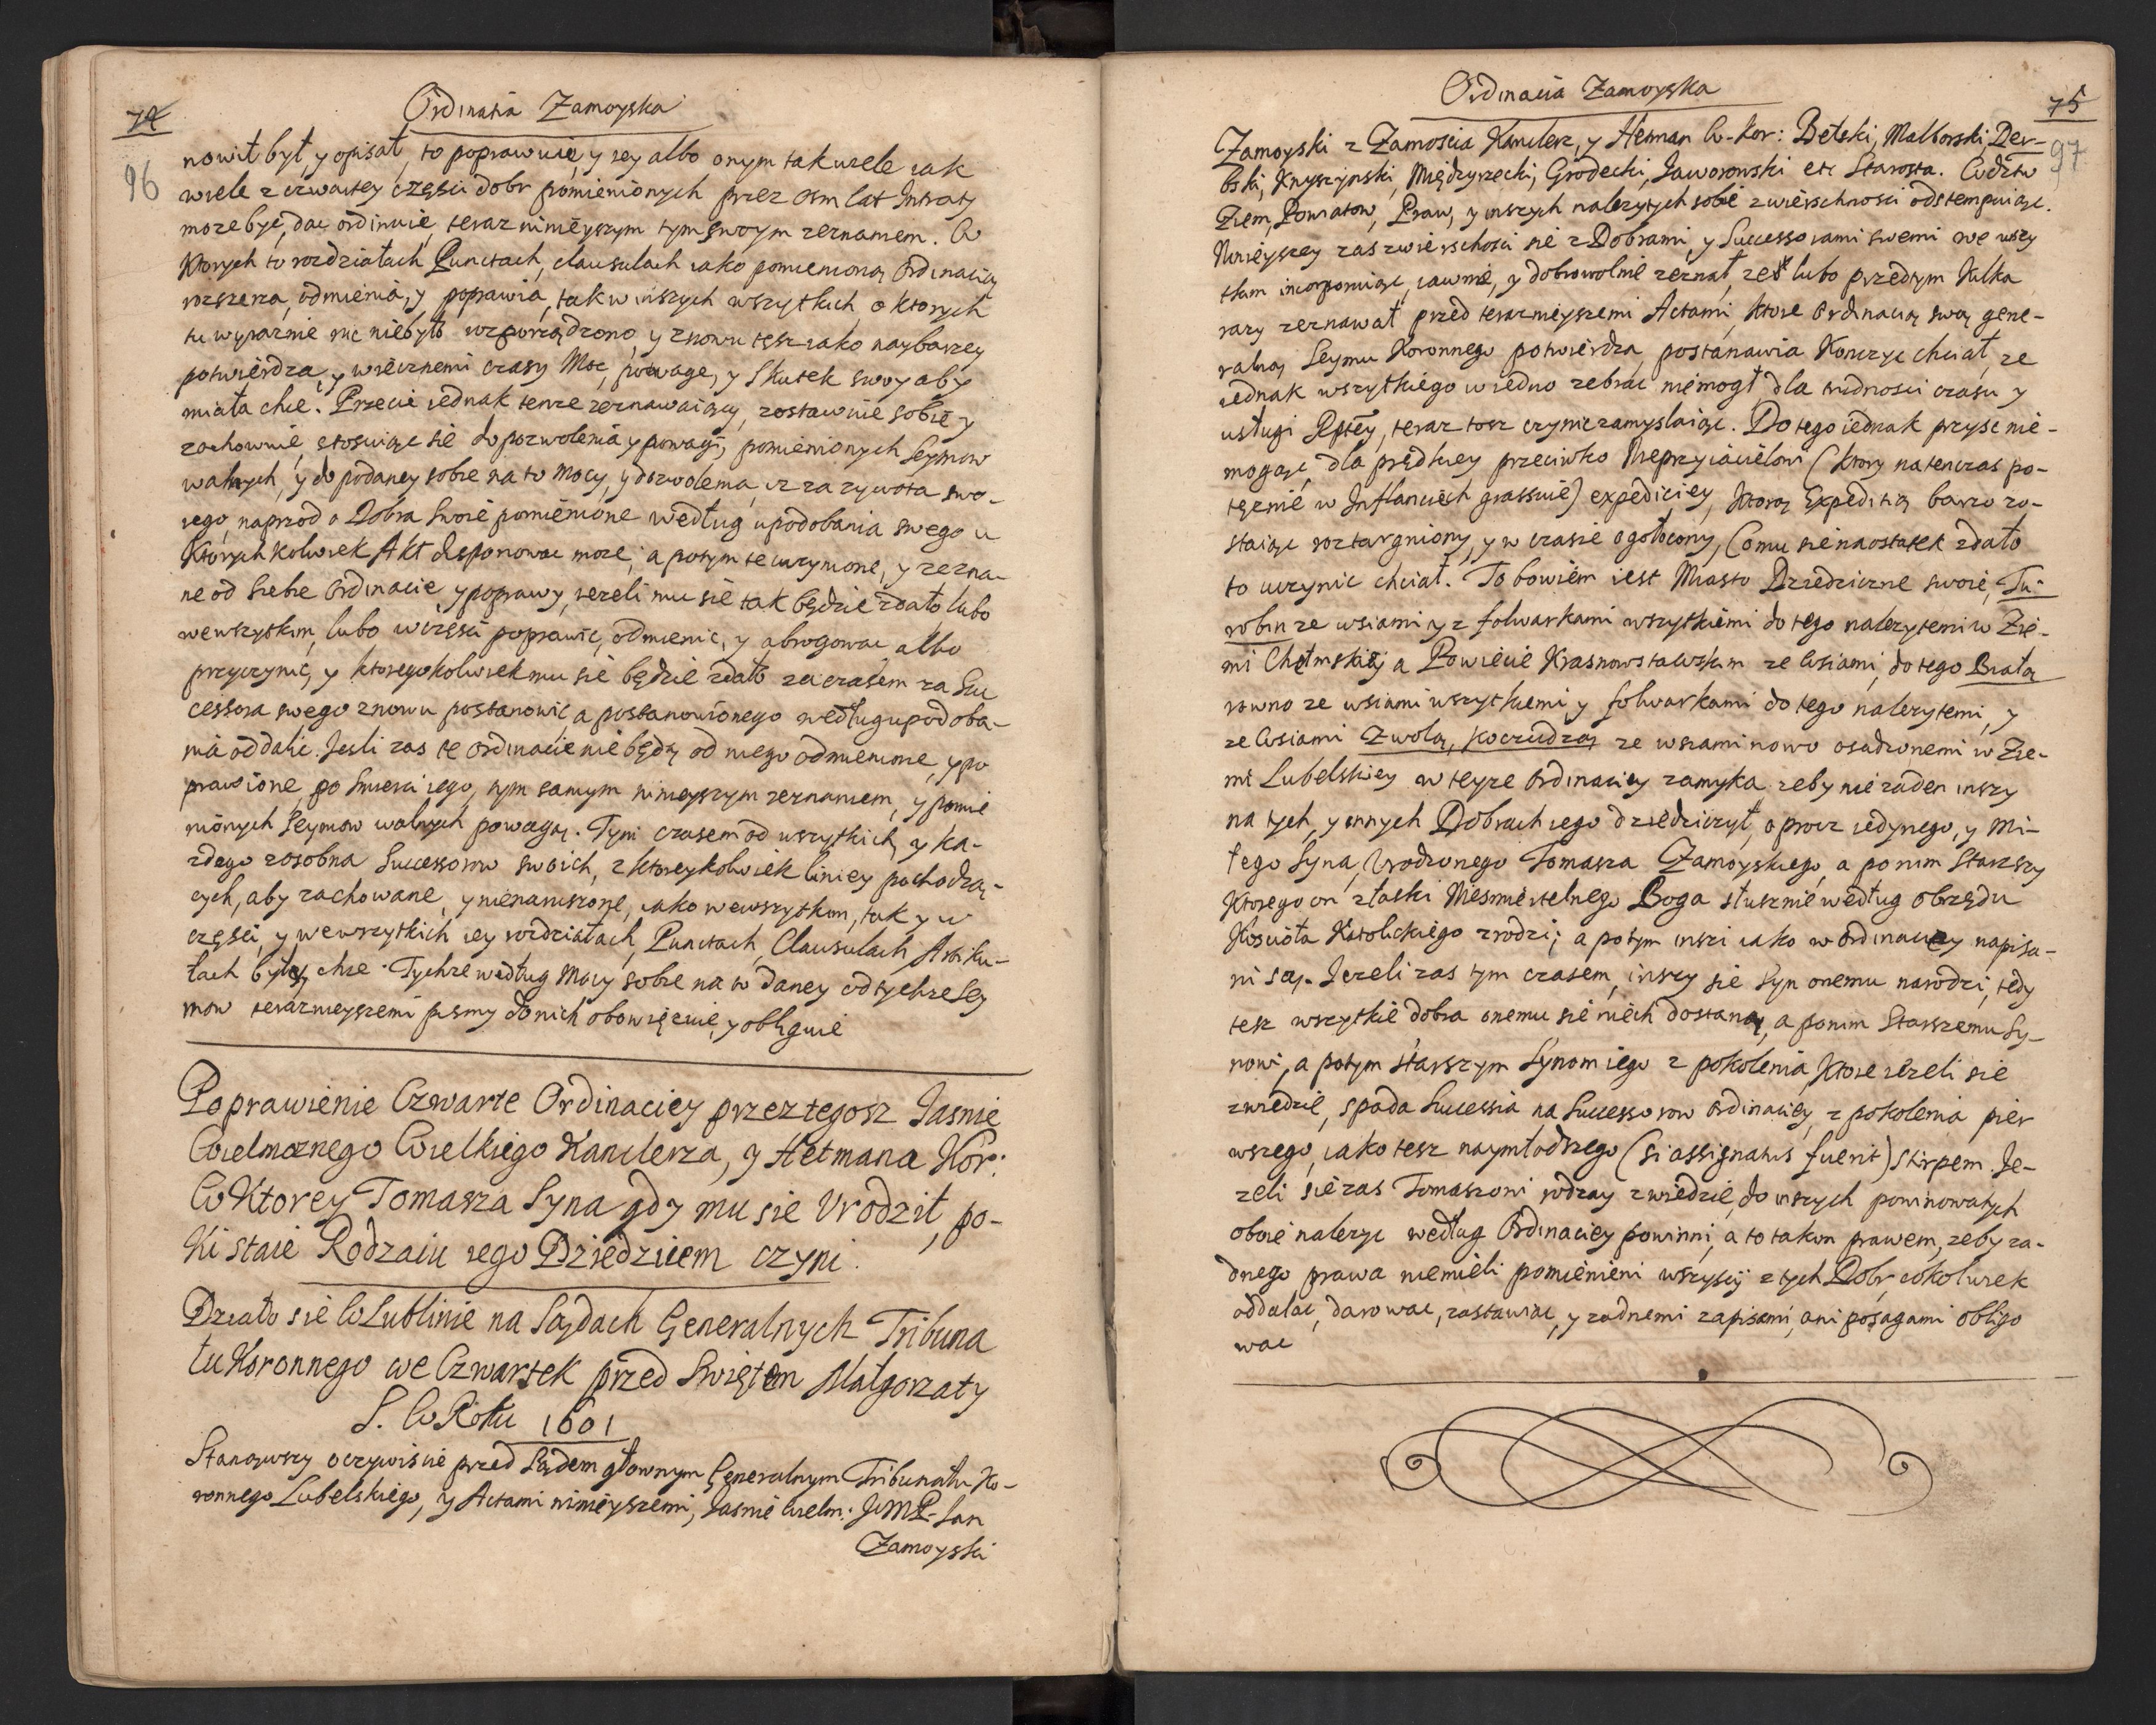 74
Ordinatia Zamoyska
96
nowił był, y opisał, to poprawuie, y iey albo onym tak wiele iak
wiele z czwartey części dobr pomienionych przez osm lat Intraty
może byc, dac ordinuie, teraz ninieyszym tym swoym zeznaniem. W
Ktorych to rozdziałach Punctach, clausulach iako pomienioną Ordinacią
rozszerza, odmienia, y poprawia, tak w inszych wszytkich, o ktorych
tu wyraznie nic niebyło rozporządzono, y znowu tesz iako naybarzey
potwierdza, y wiecznemi czasy Moc, powagę, y Skutek swoy aby
miała chce. Przecie iednak tenze zeznawaiący, zostawuie sobie y
zachownie, stosuiąc sie do pozwolenia y powagi, pomienionych Seymow
walnych, y do podaney sobie na to mocy, y dozwolenia, iz za zywota swo-
iego, naprzod o Dobra Swoie pomienione według upodobania swego u
Ktorychkolwiek Akt disponowac moze, a potym te uczynione, y zezna-
ne od Siebie Ordinacie y poprawy, iezeli mu sie tak będzie zdało, lubo
wewszytkim, lubo wczęsci poprawic, odmienic, y abrogowac albo
przyczynic, y ktoregokolwiek mu sie będzie zdało za czasem za Suc
cessora swego znowu postanowic a postanowionego według upodoba-
nia oddalic. Jesli zas te ordinacie nie będą od niego odmienione, y po
prawione, po Smierci iego, tym samym ninieyszym zeznaniem, y pomie
nionych Seymow walnych powagą. Tym czasem od wszytkich, y ka-
zdego zosobna Successorow swoich, z ktoreykolwiek liniey pochodzą-
cych, aby zachowane, y nienaruszone, iako wewszytkim, tak y w
częsci, y wewszytkich iey rozdziałach, Punctach, Clausulach Artiku-
łach były, chce. Tychze według Mocy sobie na to daney od tychze Sey
mow teraznieyszemi pismy do nich obowięzuie, y obliguie
Poprawienie Czwarte Ordinaciey przez tegosz Jasnie
Wielmoznego Wielkiego Kanclerza, y Hetmana Kor:
W Ktorey Tomasza Syna gdy mu sie Vrodził, po-
Ki staie Rodzaiu iego Dziedzicem czyni.
Działo sie w Lublinie na Sądach Generalnych Tribuna
łu Koronnego we Czwartek przed Swiętem Małgorzaty
S. W Roku 1601
Stanąwszy oczywiscie przed Sądem głownym Generalnym Tribunału Ko-
ronnego Lubelskiego, y Actami ninieyszemi, Jasnie Wielm: JMP. Jan
Zamoyski
Ordinacia Zamoyska
75
97
Zamoyski z Zamoscia Kanclerz, y Hetman W. Kor: Bełski, Malborski, Der-
bski, Knyszynski, Międzyrzecki, Grodecki, Jaworowski etc Starosta. Wodztw
Ziem, Powiatow, Praw, y inszych nalezytych sobie zwierschnosci odstempuiąc.
Ninieyszey zas zwierschosci sie z Dobrami, y Successorami swemi we wszy
tkim incorporuiąc, iawnie, y dobrowolnie zeznał, ze lubo przedtym Kilka
razy zeznawał przed terazneyszemi Actami, Ktore Ordinacią swą gene-
ralną Seymu Koronnego potwierdza, postanawia Konczyc chciał, ze
iednak wszytkiego w iedno zebrac niemogł dla trudnosci czasu y
usługi Rptey, teraz tosz czynic zamyslaiąc. Do tego iednak przysc nie-
mogąc, dla prędkiey przeciwko Nieprzyiacielowi (ktory natenczas po-
tęznie w Inflanciech grassuie) expediciey, Ktorą Expeditią barzo zo-
staiąc roztargniony, y w czasie ogołocony, Comu sie naostatek zdało
to uczynic chciał. To bowiem iest Miasto Dziedziczne swoie, Tu-
robin ze wsiami y z folwarkami wszytkiemi do tego nalezytemi w Zie-
mi Chełmskiey a Powiecie Krasnowstawskim ze Wsiami, do tego Białą
rowno ze wsiami wszytkiemi y folwarkami do tego nalezytemi, y
ze Wsiami Zwolą, Koczudzą ze wsiami nowo osadzonemi w Zie-
mi Lubelskiey w teyze Ordinaciey zamyka zeby nie zaden inszy
na tych, y innych Dobrach iego dziedziczył, oprocz iedynego, y Mi-
łego Syna, Vrodzonego Tomasza Zamoyskiego, a po nim Starszy
Ktorego on z łaski Niesmiertelnego Boga słusznie według obrzędu
Koscioła Katolickiego zrodzi; a potym inszi iako w Ordinaciey napisa-
ni są. Jezeli zas tym czasem, inszy sie Syn onemu narodzi, tedy
tesz wszytkie dobra onemu sie niech dostaną, a ponim Starszemu Sy-
nowi, a potym starszym Synom iego z pokolenia, Ktore iezeli sie
zwiedzie, spada Successia na Successorow Ordinaciey, z pokolenia pier
wszego, iako tesz naymłodszego (si assignatus fuerit) Stirpem. Je-
zeli sie zas Tomaszowi rodzay zwiedzie, do inszych powinowatych
oboie nalezyc według Ordinaciey powinni, a to takim prawem, zeby za-
dnego prawa niemieli pomienieni wszyscy z tych Dobr cokolwiek
oddalac, darowac, zastawiac, y zadnemi zapisami, ani posagami obligo
wac